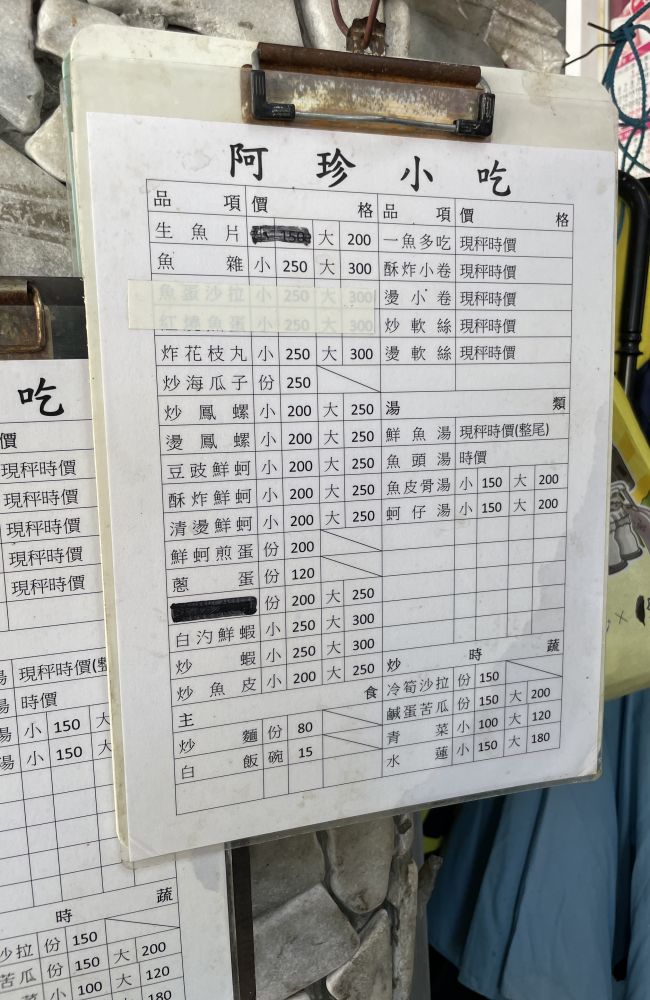 阿珍小吃
品項 價格
生魚片 大 200
魚雜 小 250 大 300
魚蛋沙拉 小 250 大 300
紅燒魚蛋 小 250 大 300
炸花枝丸 小 250 大 300
炒海瓜子 份 250
炒鳳螺 小 200 大 250
燙鳳螺 小 200 大 250
豆豉鮮蚵 小 200 大 250
酥炸鮮蚵 小 200 大 250
清燙鮮蚵 小 200 大 250
鮮蚵煎蛋 份 200
蔥蛋 份 120
份 200 大 250
白汋鮮蝦 小 250 大 300
炒蝦 小 250 大 300
炒魚皮 小 200 大 250
主食
炒麵 份 80
白飯 碗 15
品項 價格
一魚多吃 現秤時價
酥炸小卷 現秤時價
燙小卷 現秤時價
炒軟絲 現秤時價
燙軟絲 現秤時價
湯類
鮮魚湯 現秤時價(整尾)
魚頭湯 時價
魚皮骨湯 小 150 大 200
蚵仔湯 小 150 大 200
炒時蔬
冷筍沙拉 份 150
鹹蛋苦瓜 份 150 大 200
青菜 小 100 大 120
水蓮 小 150 大 180
吃
價
現秤時價
現秤時價
現秤時價
現秤時價
現秤時價
湯 現秤時價(整
湯 時價
湯 小 150 大
湯 小 150 大
時蔬
沙拉 份 150
苦瓜 份 150 大 200
菜 小 100 大 120
180